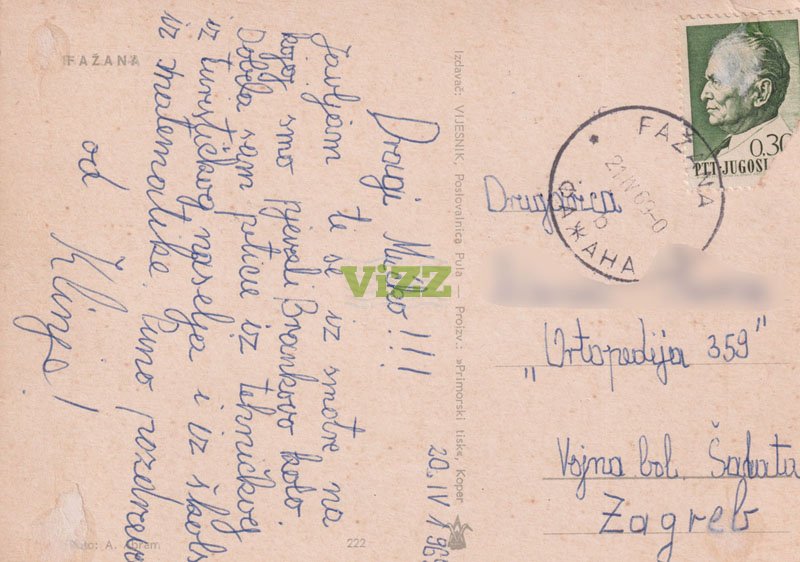 FAŽANA
Dragi Mucko!!!
Javljam te se iz smotre na
kojoj smo pjevali Brankovo kolo.
Dobila sam pticu iz tehničkog
iz turističkog naselja i iz škols
iz matematike. Puno pozdrava
od Klinge!
20. IV 196
Foto: A. Abram
222
Izdavač: VIJESNIK, Poslovalnica Pula — Proizv: »Primorski tisk«, Koper
ViZZ
0.30
PTT-JUGOSL
FAŽANA
21 IV 69-0
ФАЖАНА
Drugarica
"Ortopedija 359"
Vojna bol. Šalata
Zagreb